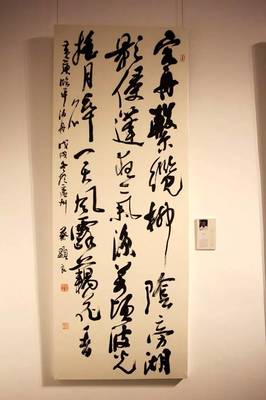 客舟繫纜柳陰旁湖
影侵蓬夜氣涼萬頃波光
搖月碎一天風露藕花香
黃庚臨平泊舟 戊戌冬於廣州 蔡顯良